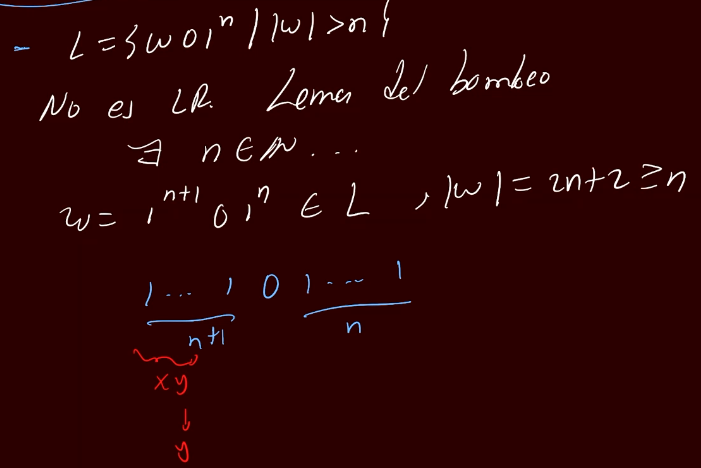 - L = { w 0 1^n | |w| > n }
No es LR. Lema del bombeo
∃ n ∈ ℕ ...
w = 1^{n+1} 0 1^n ∈ L , |w| = 2n+2 ≥ n
1 ... 1 0 1 ... 1
n+1 n
x y
↓
y